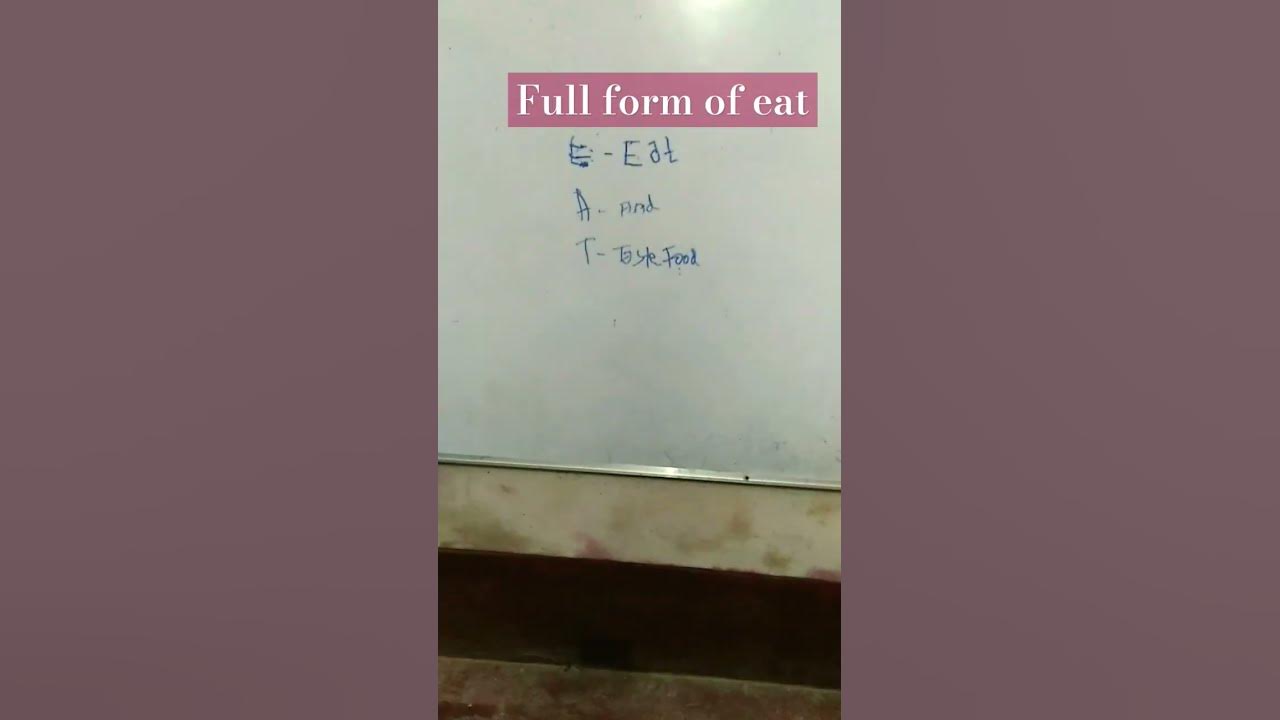 Full form of eat
E - Eat
A - And
T - Taste Food